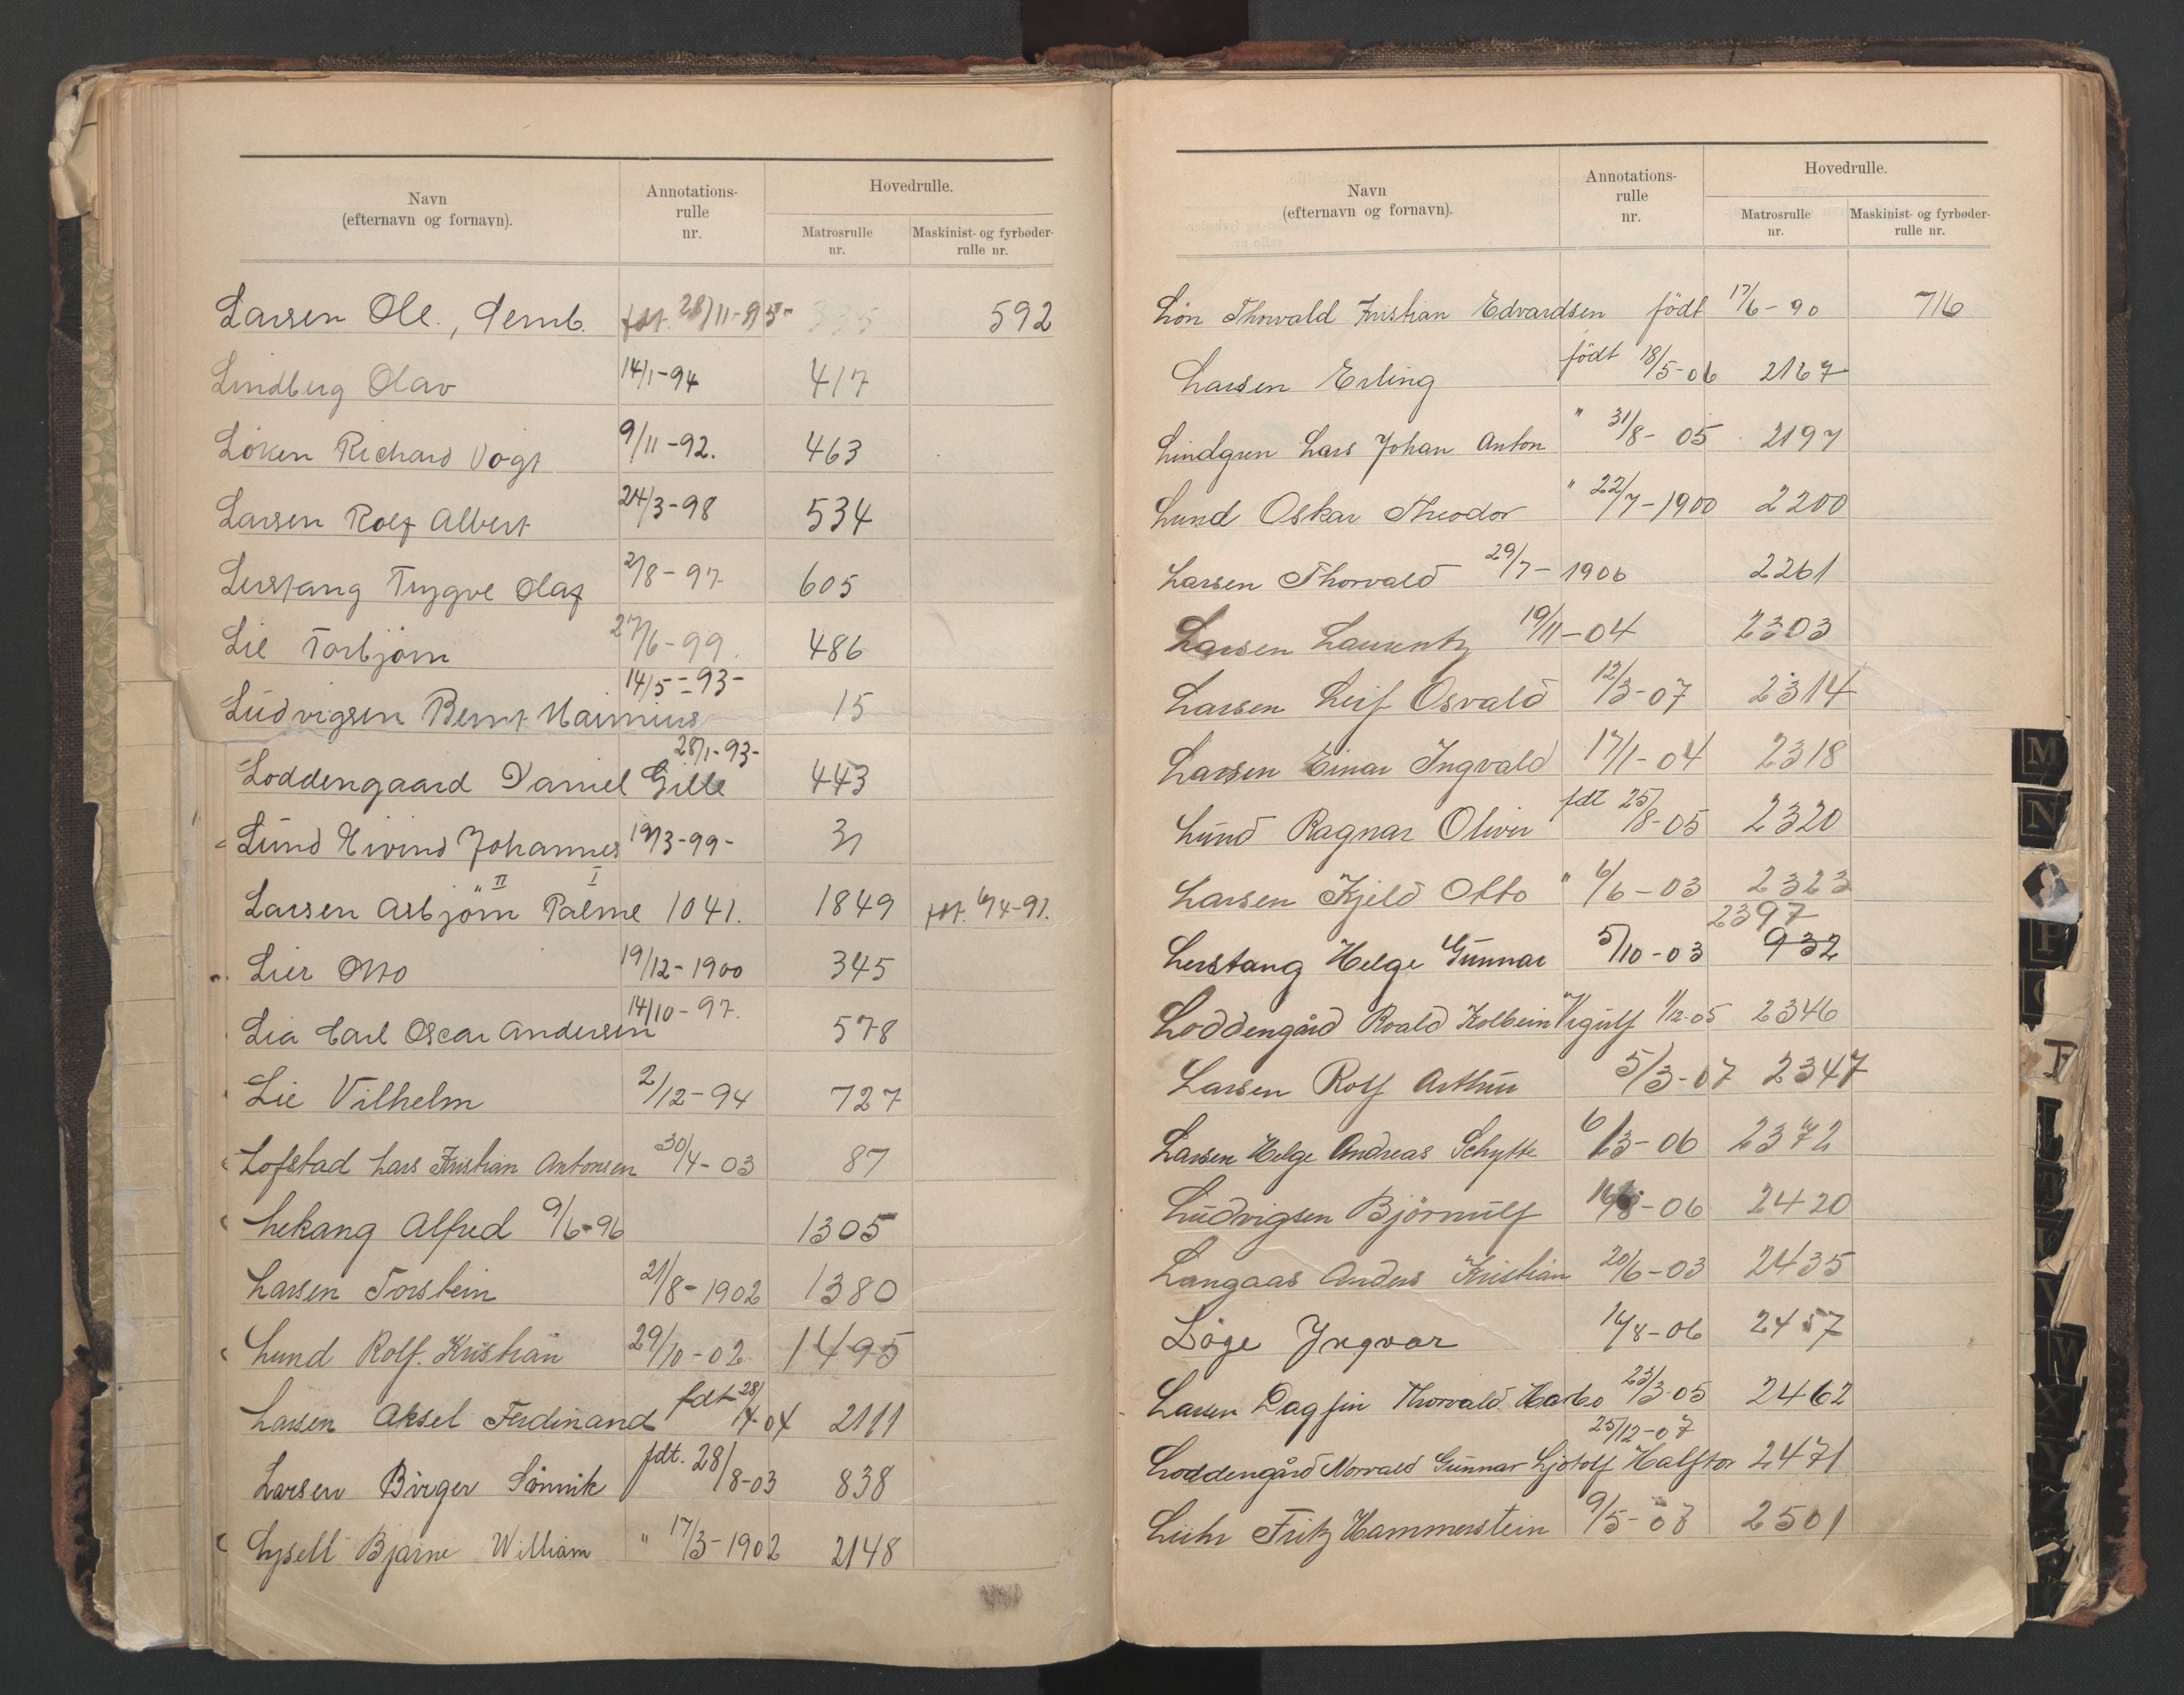 Navn
(efternavn og fornavn).
Annotations-
rulle
nr.
Hovedrulle.
Matrosrulle
nr.
Maskinist- og fyrbøder-
rulle nr.
Larsen Ole., Semb. fdt. 28/11-95- 335 592
Lindberg Olav 14/1-94 417
Löken Richard Vogt 9/11-92. 463
Larsen Rolf Albert 24/3-98 534
Lerstang Trygve Olaf 2/8-97 605
Lie Torbjörn 27/6-99. 486
14/5-93-
Ludvigsen Bernt Marinius 15
28/1-93-
Loddengaard Daniel Gille 443
Lund Eivind Johannes 19/3-99- 31
" II I
Larsen Asbjörn Palme 1041. 1849 fdt. 6/4-91.
Lier Otto 19/12-1900 345
14/10-97.
Lia Carl Oscar Andersen 578
Lie Vilhelm 2/12-94 727
Lofstad Lars Kristian Antonsen 30/4-03 87
Lekang Alfred 9/6-96 1305
Larsen Torstein 21/8-1902 1380
Lund Rolf. Kristian 29/10-02 1495
Larsen Aksel Ferdinand fdt 28/4-04 2111
Larsen Birger Sönnik fdt. 28/8-03 838
Lysell Bjarne William " 17/3-1902 2148
Navn
(efternavn og fornavn).
Annotations-
rulle
nr.
Hovedrulle.
Matrosrulle
nr.
Maskinist- og fyrbøder-
rulle nr.
Lön Thorvald Kristian Edvardsen født 17/6-90 716
Larsen Erling födt 18/5-06 2167
Lindgren Lars Johan Anton " 31/8-05 2197
Lund Oskar Theodor " 22/7-1900 2200
Larsen Thorvald 29/7-1906 2261
Larsen Laurentz 19/11-04 2303
Larsen Leif Osvald 12/3-07 2314
Larsen Einar Ingvald 17/1-04 2318
Lund Ragnar Oliver fdt 25/8-05 2320
Larsen Kjeld Otto " 6/6-03 2323
2397
Lerstang Helge Gunnar 5/10-03 932
Loddengård Roald Kolbein Vigulf 1/12-05 2346
Larsen Rolf Arthur 5/3-07 2347
Larsen Helge Andreas Schytte 6/3-06 2372
Ludvigsen Björnulf 16/8-06 2420
Langaas Anders Kristian 20/6-03 2435
Löge Yngvar 16/8-06 2457
Larsen Dagfin Thorvald Harbo 23/3-05 2462
25/12-07
Loddengård Norvald Gunnar Ljotolf Halftor 2471
Lühr Fritz Hammerstein 9/5-07 2501
M
N
P
T
V
W
X